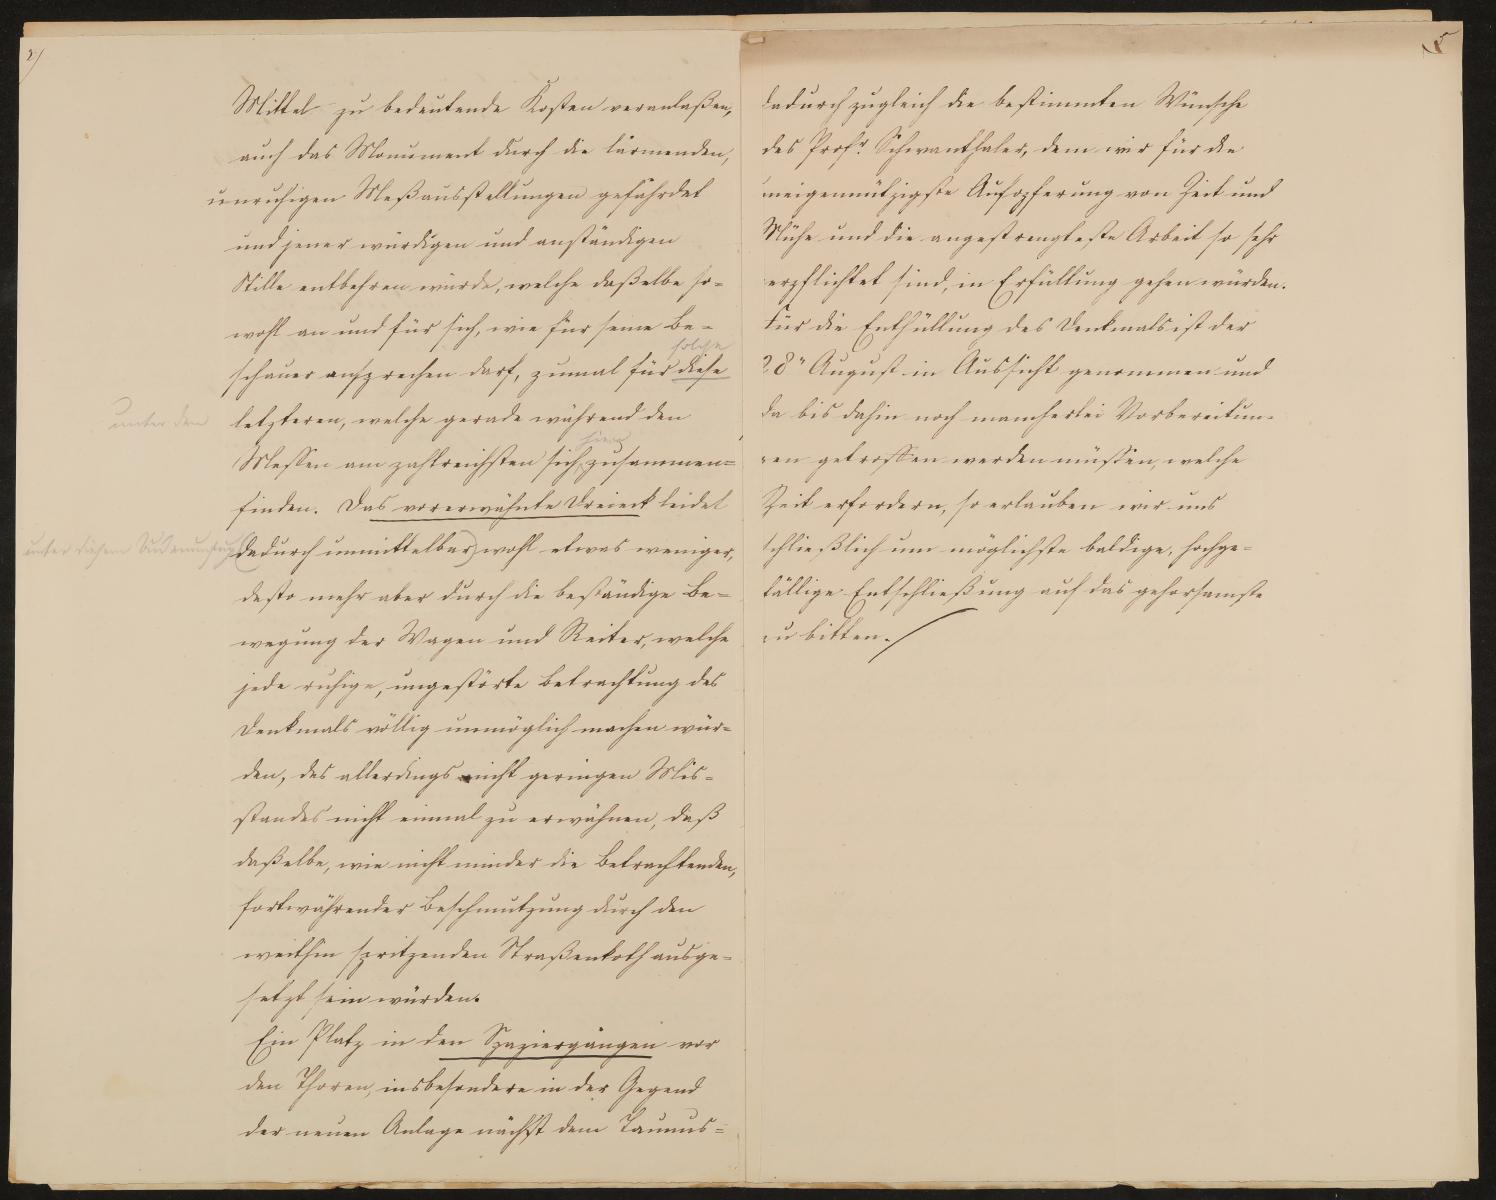 2)
Mittel zu bedeutende Kosten veranlaßen,
auch das Monument durch die lärmenden,
unruhigen Meßausstellungen gefährdet
und jener würdigen und anständigen
Stille entbehren würde, welche daßelbe so-
wohl an und für sich, wie für seine Be-
solche
schauer ansprechen darf, zumal für diese
unter den
letzteren, welche gerade während den
hier
Messen am zahlreichsten sich zusammen-
finden. Das vorerwähnte Dreieck leidet
unter diesem
(dadurch unmittelbar) wohl etwas weniger,
desto mehr aber durch die beständige Be-
wegung der Wagen und Reiter, welche
jede ruhige, ungestörte Betrachtung des
Denkmals völlig unmöglich machen wür-
den, des allerdings nicht geringen Mis-
standes nicht einmal zu erwähnen, daß
daßelbe, wie nicht minder die Betrachtenden,
fortwährender Beschmutzung durch den
weithin spritzenden Straßenkoth ausge-
setzt sein würden.
Ein Platz in den Spaziergängen vor
den Thoren, insbesondere in der Gegend
der neuen Anlage nächst dem Taunus-
5
dadurch zugleich die bestimmten Wünsche
des Profr. Schwanthaler, dem wir für die
uneigennützigste Aufopferung von Zeit und
Mühe und die angestrengteste Arbeit so sehr
verpflichtet sind, in Erfüllung gehen würden.
Für die Enthüllung des Denkmals ist der
28" August in Aussicht genommen und
da bis dahin noch mancherlei Vorbereitun-
gen getroffen werden müssen, welche
Zeit erfordern, so erlauben wir uns
schließlich um möglichste baldige, hochge-
fällige Entschließung auf das gehorsamste
zu bitten.